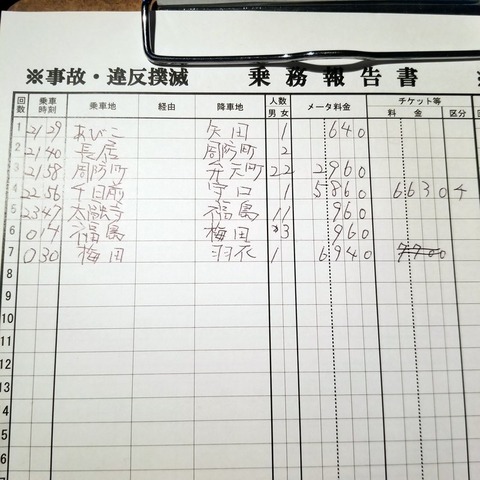 ※事故・違反撲滅 乗務報告書
回数 乗車時刻 乗車地 経由 降車地 人数 男 女 メータ料金 チケット等 料金 区分
1 2129 あびこ 矢田 1 640
2 2140 長居 周防町 2
3 2158 周防町 弁天町 22 2960
4 2256 千日前 守口 1 5860 6630 4
5 2347 太融寺 福島 11 960
6 014 福島 梅田 3 960
7 030 梅田 羽衣 1 6940 7700
8
9
10
11
12
13
4
5
6